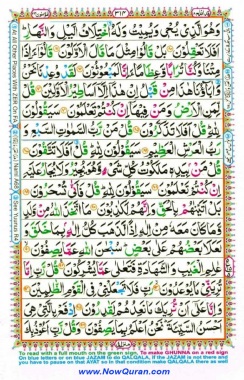 وَهُوَ الَّذِیْ یُحْیٖ وَیُمِیْتُ وَلَهُ اخْتِلَافُ الَّیْلِ وَالنَّهَارِ
اَفَلَا تَعْقِلُوْنَ بَلْ قَالُوْا مِثْلَ مَا قَالَ الْاَوَّلُوْنَ قَالُوْۤا ءَاِذَا
مِتْنَا وَكُنَّا تُرَابًا وَّعِظَامًا ءَاِنَّا لَمَبْعُوْثُوْنَ لَقَدْ وُعِدْنَا نَحْنُ
وَاٰبَآؤُنَا هٰذَا مِنْ قَبْلُ اِنْ هٰذَاۤ اِلَّاۤ اَسَاطِیْرُ الْاَوَّلِیْنَ قُلْ
لِّمَنِ الْاَرْضُ وَمَنْ فِیْهَاۤ اِنْ كُنْتُمْ تَعْلَمُوْنَ سَیَقُوْلُوْنَ
لِلّٰهِ قُلْ اَفَلَا تَذَكَّرُوْنَ قُلْ مَنْ رَّبُّ السَّمٰوٰتِ السَّبْعِ وَ
رَبُّ الْعَرْشِ الْعَظِیْمِ سَیَقُوْلُوْنَ لِلّٰهِ قُلْ اَفَلَا تَتَّقُوْنَ
قُلْ مَنْۢ بِیَدِهٖ مَلَكُوْتُ كُلِّ شَیْءٍ وَّهُوَ یُجِیْرُ وَلَا یُجَارُ عَلَیْهِ
اِنْ كُنْتُمْ تَعْلَمُوْنَ سَیَقُوْلُوْنَ لِلّٰهِ قُلْ فَاَنّٰی تُسْحَرُوْنَ
بَلْ اَتَیْنٰهُمْ بِالْحَقِّ وَاِنَّهُمْ لَكٰذِبُوْنَ مَا اتَّخَذَ اللّٰهُ مِنْ وَّلَدٍ
وَّمَا كَانَ مَعَهٗ مِنْ اِلٰهٍ اِذًا لَّذَهَبَ كُلُّ اِلٰهٍۭ بِمَا خَلَقَ وَ
لَعَلَا بَعْضُهُمْ عَلٰی بَعْضٍ سُبْحٰنَ اللّٰهِ عَمَّا یَصِفُوْنَ
عٰلِمِ الْغَیْبِ وَالشَّهَادَةِ فَتَعٰلٰی عَمَّا یُشْرِكُوْنَ قُلْ رَّبِّ اِمَّا
تُرِیَنِّیْ مَا یُوْعَدُوْنَ رَبِّ فَلَا تَجْعَلْنِیْ فِی الْقَوْمِ الظّٰلِمِیْنَ
وَاِنَّا عَلٰۤی اَنْ نُّرِیَكَ مَا نَعِدُهُمْ لَقٰدِرُوْنَ اِدْفَعْ بِالَّتِیْ هِیَ
اَحْسَنُ السَّیِّئَةَ نَحْنُ اَعْلَمُ بِمَا یَصِفُوْنَ وَقُلْ رَّبِّ اَعُوْذُ بِكَ
To read with a full mouth on the green sign, To make GHUNNA on a red sign
On blue letters or on blue JAZAM to do QALQALA, if the JAZAM is not there and
you have to pause on that AYAT so in that condition make QALQALA there as well
www.NowQuran.com